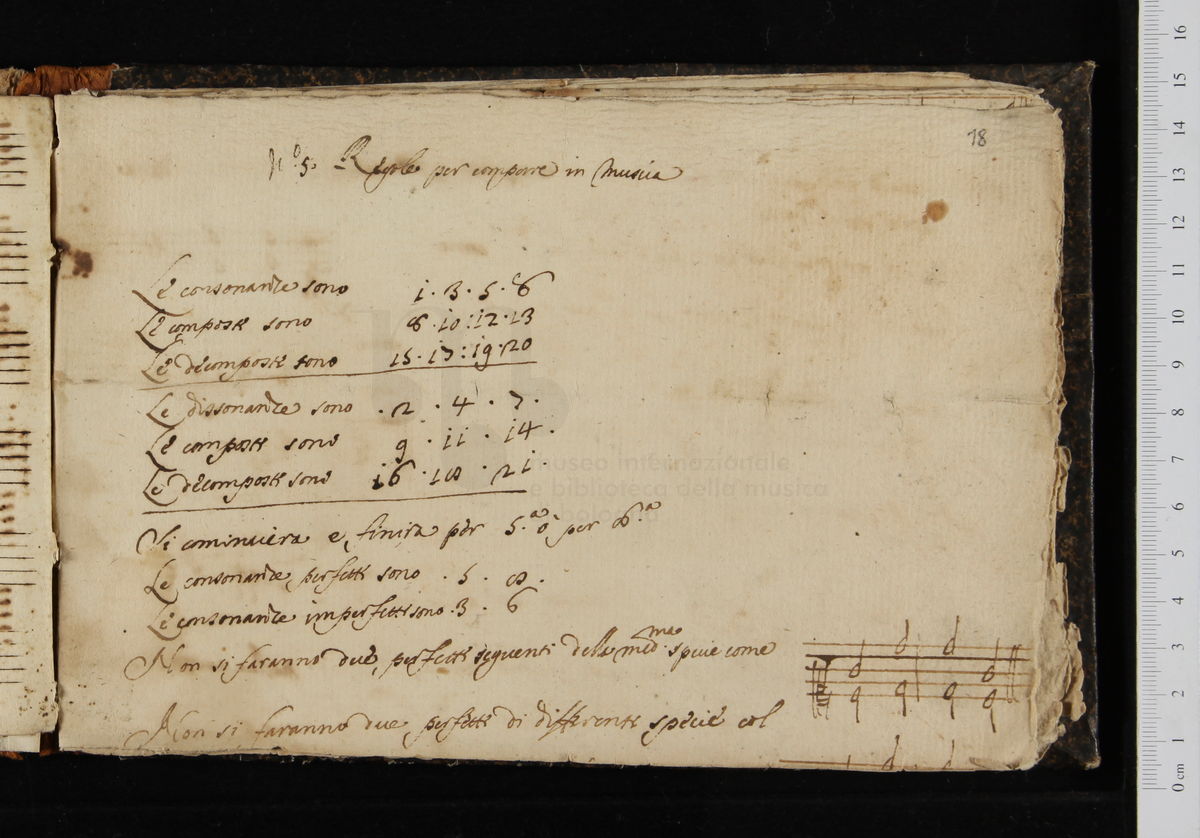 18
N.º 5. Regole per compore in Musica
Le consonanze sono 1. 3. 5. 6
Le composte sono 8. 10: 12. 13
Le decomposte sono 15. 17: 19. 20
Le dissonanze sono . 2 . 4 . 7.
Le composte sono 9 . 11 . 14 .
Le decomposte sono 16 . 18 . 21
Si cominciera e finira per 5.ª o per 8.ª
Le consonanze perfette sono . 5 . 8 .
Le consonanze imperfette sono . 3 . 6
Non si faranno due perfette seguenti della med.ma specie come
Non si faranno due perfette di differente specie col
museo internazionale
e biblioteca della musica
bologna
0 cm 1 2 3 4 5 6 7 8 9 10 11 12 13 14 15 16